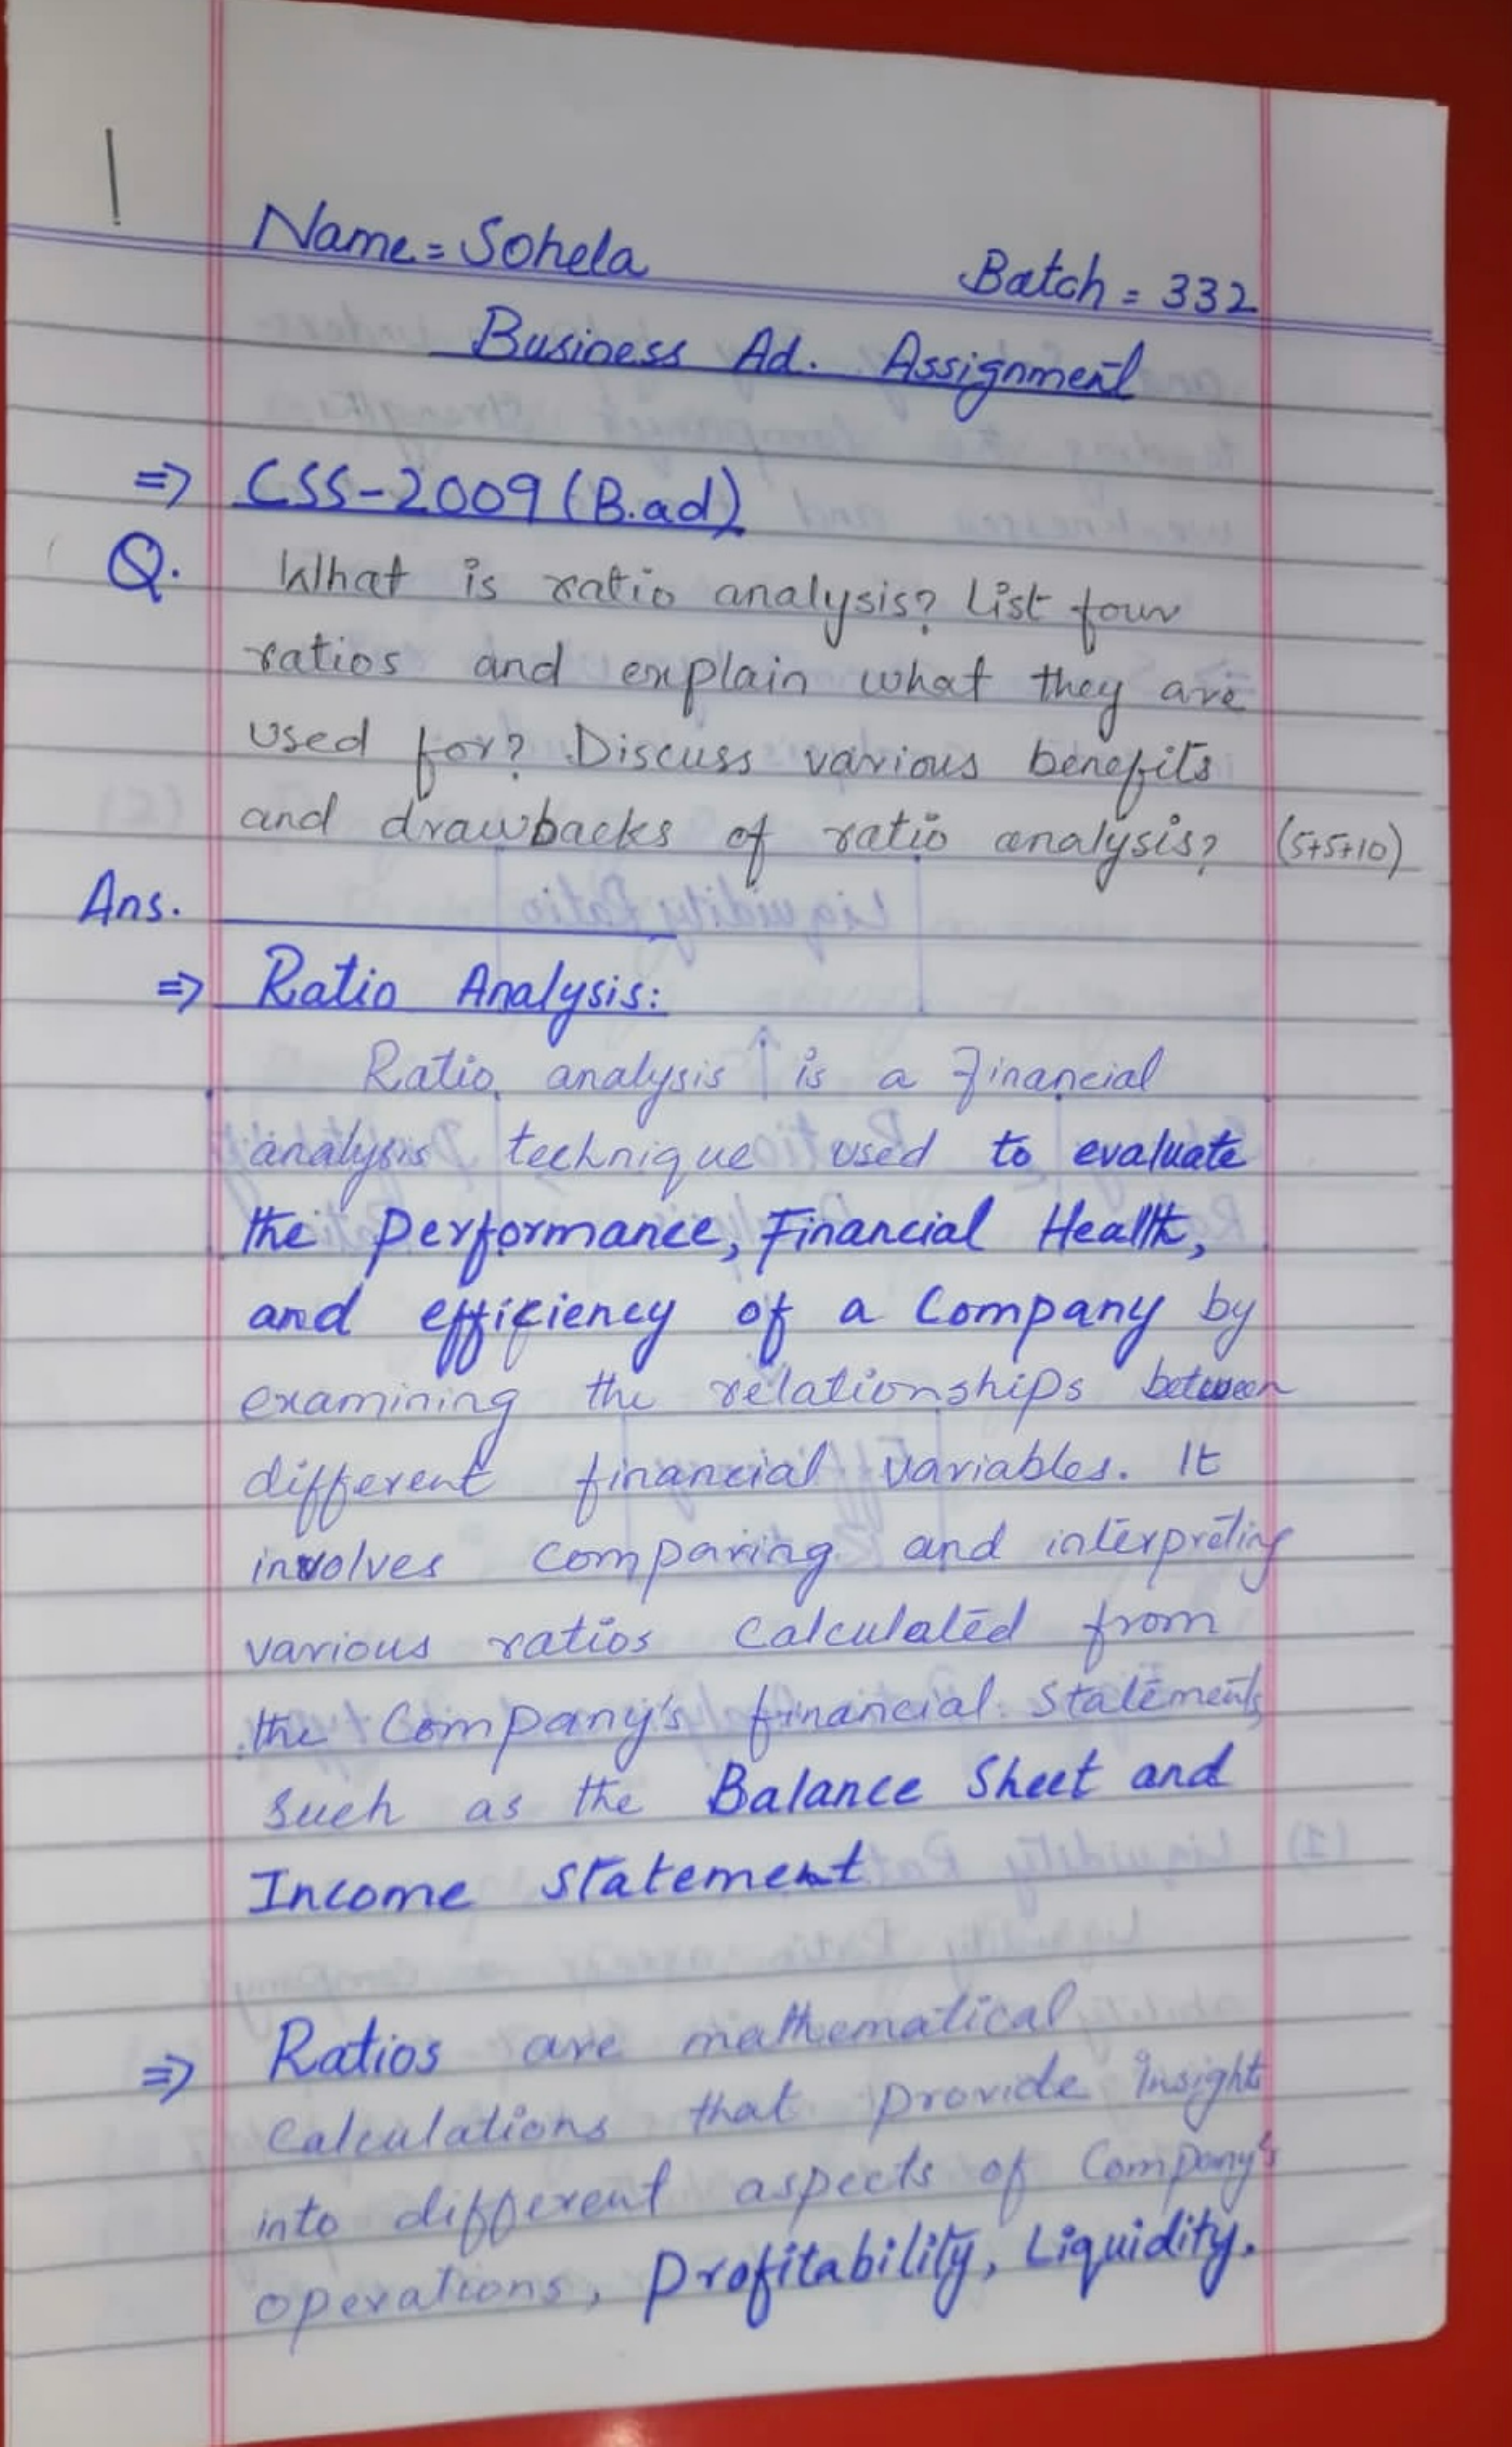 1
Name = Sohela Batch = 332
Business Ad. Assignment
⇒ CSS-2009 (B.ad)
Q. What is ratio analysis? List four
ratios and explain what they are
used for? Discuss various benefits
and drawbacks of ratio analysis? (5+5+10)
Ans.
⇒ Ratio Analysis:
Ratio analysis is a financial
analysis technique used to evaluate
the performance, Financial Health,
and efficiency of a Company by
examining the relationships between
different financial variables. It
involves comparing and interpreting
various ratios calculated from
the Company's financial statements
such as the Balance Sheet and
Income statement
⇒ Ratios are mathematical
calculations that provide insight
into different aspects of Company's
operations, profitability, Liquidity.